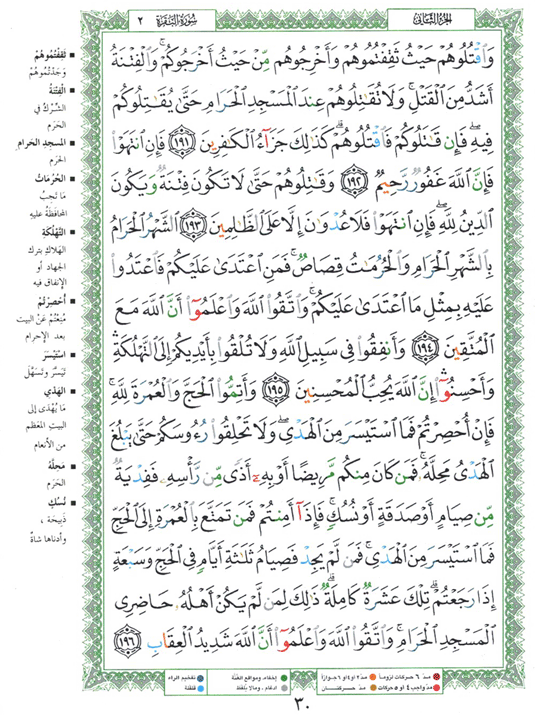 الجزء الثاني
سورة البقرة ٢
وَٱقۡتُلُوهُمۡ حَيۡثُ ثَقِفۡتُمُوهُمۡ وَأَخۡرِجُوهُم مِّنۡ حَيۡثُ أَخۡرَجُوكُمۡۚ وَٱلۡفِتۡنَةُ
أَشَدُّ مِنَ ٱلۡقَتۡلِۚ وَلَا تُقَٰتِلُوهُمۡ عِندَ ٱلۡمَسۡجِدِ ٱلۡحَرَامِ حَتَّىٰ يُقَٰتِلُوكُمۡ
فِيهِۖ فَإِن قَٰتَلُوكُمۡ فَٱقۡتُلُوهُمۡۗ كَذَٰلِكَ جَزَآءُ ٱلۡكَٰفِرِينَ ١٩١ فَإِنِ ٱنتَهَوۡاْ
فَإِنَّ ٱللَّهَ غَفُورٞ رَّحِيمٞ ١٩٢ وَقَٰتِلُوهُمۡ حَتَّىٰ لَا تَكُونَ فِتۡنَةٞ وَيَكُونَ
ٱلدِّينُ لِلَّهِۖ فَإِنِ ٱنتَهَوۡاْ فَلَا عُدۡوَٰنَ إِلَّا عَلَى ٱلظَّٰلِمِينَ ١٩٣ ٱلشَّهۡرُ ٱلۡحَرَامُ
بِٱلشَّهۡرِ ٱلۡحَرَامِ وَٱلۡحُرُمَٰتُ قِصَاصٞۚ فَمَنِ ٱعۡتَدَىٰ عَلَيۡكُمۡ فَٱعۡتَدُواْ
عَلَيۡهِ بِمِثۡلِ مَا ٱعۡتَدَىٰ عَلَيۡكُمۡۚ وَٱتَّقُواْ ٱللَّهَ وَٱعۡلَمُوٓاْ أَنَّ ٱللَّهَ مَعَ
ٱلۡمُتَّقِينَ ١٩٤ وَأَنفِقُواْ فِي سَبِيلِ ٱللَّهِ وَلَا تُلۡقُواْ بِأَيۡدِيكُمۡ إِلَى ٱلتَّهۡلُكَةِ
وَأَحۡسِنُوٓاْۚ إِنَّ ٱللَّهَ يُحِبُّ ٱلۡمُحۡسِنِينَ ١٩٥ وَأَتِمُّواْ ٱلۡحَجَّ وَٱلۡعُمۡرَةَ لِلَّهِۚ
فَإِنۡ أُحۡصِرۡتُمۡ فَمَا ٱسۡتَيۡسَرَ مِنَ ٱلۡهَدۡيِۖ وَلَا تَحۡلِقُواْ رُءُوسَكُمۡ حَتَّىٰ يَبۡلُغَ
ٱلۡهَدۡيُ مَحِلَّهُۥۚ فَمَن كَانَ مِنكُم مَّرِيضًا أَوۡ بِهِۦٓ أَذٗى مِّن رَّأۡسِهِۦ فَفِدۡيَةٞ
مِّن صِيَامٍ أَوۡ صَدَقَةٍ أَوۡ نُسُكٖۚ فَإِذَآ أَمِنتُمۡ فَمَن تَمَتَّعَ بِٱلۡعُمۡرَةِ إِلَى ٱلۡحَجِّ
فَمَا ٱسۡتَيۡسَرَ مِنَ ٱلۡهَدۡيِۚ فَمَن لَّمۡ يَجِدۡ فَصِيَامُ ثَلَٰثَةِ أَيَّامٖ فِي ٱلۡحَجِّ وَسَبۡعَةٍ
إِذَا رَجَعۡتُمۡۗ تِلۡكَ عَشَرَةٞ كَامِلَةٞۗ ذَٰلِكَ لِمَن لَّمۡ يَكُنۡ أَهۡلُهُۥ حَاضِرِي
ٱلۡمَسۡجِدِ ٱلۡحَرَامِۚ وَٱتَّقُواْ ٱللَّهَ وَٱعۡلَمُوٓاْ أَنَّ ٱللَّهَ شَدِيدُ ٱلۡعِقَابِ ١٩٦
ثَقِفْتُمُوهُمْ
وَجَدْتُمُوهُمْ
الْفِتْنَةُ
الشّرْكُ في
الحَرَم
المسجد الحرام
الحَرَم
الحُرُمَاتُ
ما تجبُ
المحافظةُ عليه
التَّهْلُكَةِ
الهلاكِ بتركِ
الجهاد أو
الإنفاق فيه
أُحْصِرْتُمْ
مُنِعْتُمْ عَنِ البيت
بعد الإحرام
اسْتَيْسَرَ
تَيَسَّرَ وتَسَهَّلَ
الهَدْي
مَا يُهْدَى إلى
البيتِ المعظم
من الأنعام
مَحِلَّهُ
الحَرَم
نُسُكٍ
ذَبِيحَة ،
وأدناها شاةٌ
مدّ ٦ حركات لزوماً
مدّ ٢ أو ٤ أو ٦ جوازاً
إخفاء، ومواقع الغُنَّة
تفخيم الراء
مدّ واجب ٤ أو ٥ حركات
مدّ حركتان
إدغام، وما لا يُلفظ
قلقلة
٣٠